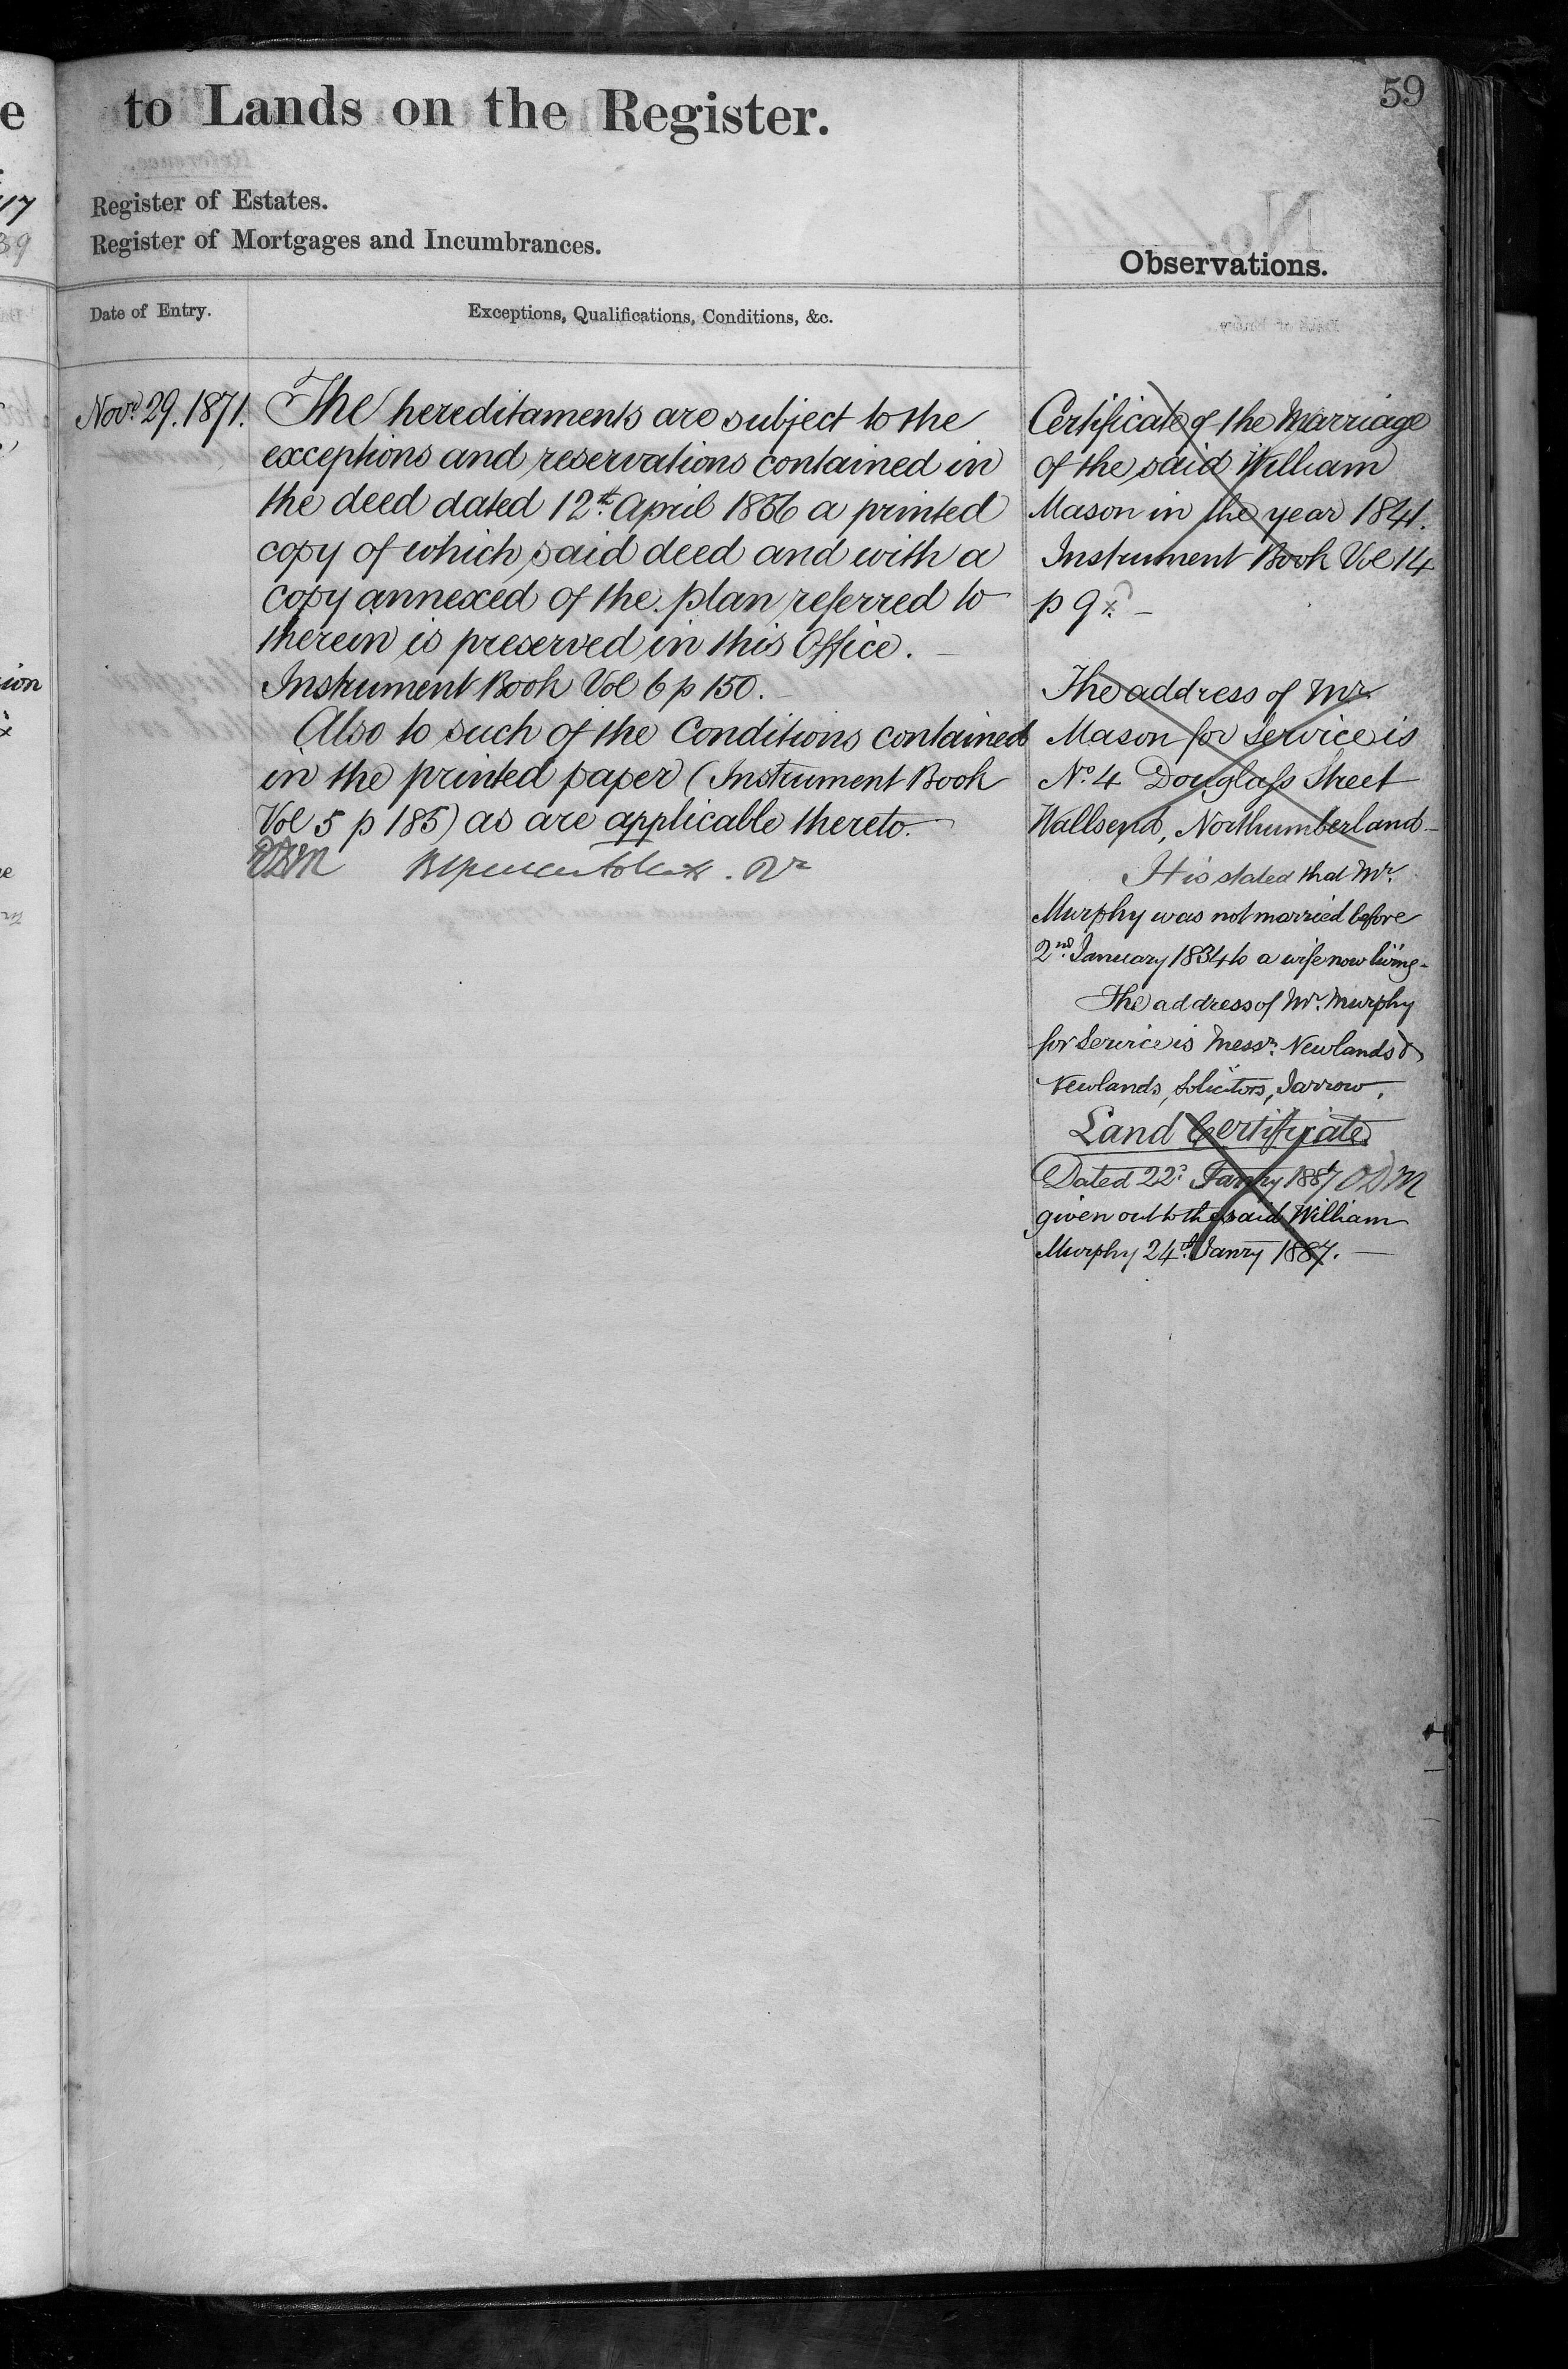 59
to Lands on the Register.
Register of Estates.
Register of Mortgages and Incumbrances.
Observations.
Date of Entry.
Exceptions, Qualifications, Conditions, &c.
Novr 29. 1871.
The hereditaments are subject to the
exceptions and reservations contained in
the deed dated 12th April 1856 a printed
copy of which said deed and with a
copy annexed of the plan referred to
therein is preserved in this Office. –
Instrument Book Vol 6 p 150. –
Also to such of the Conditions contained
in the printed paper (Instrument Book
Vol 5 p 185) as are applicable thereto. –
Certificate of the Marriage
of the said William
Mason in the year 1841.
Instrument Book Vol 14
p 9
The address of Mr
Mason for Service is
No. 4 Douglass Street
Wallsend, Northumberland –
It is stated that Mr.
Murphy was not married before
2nd January 1834 to a wife now living –
The address of Mr. Murphy
for Service is Messrs Newlands &
Newlands, Solicitors, Jarrow.
Land Certificate
Dated 22d Janry 1887 ODM
given out to the said William
Murphy 24th Janry 1887. –